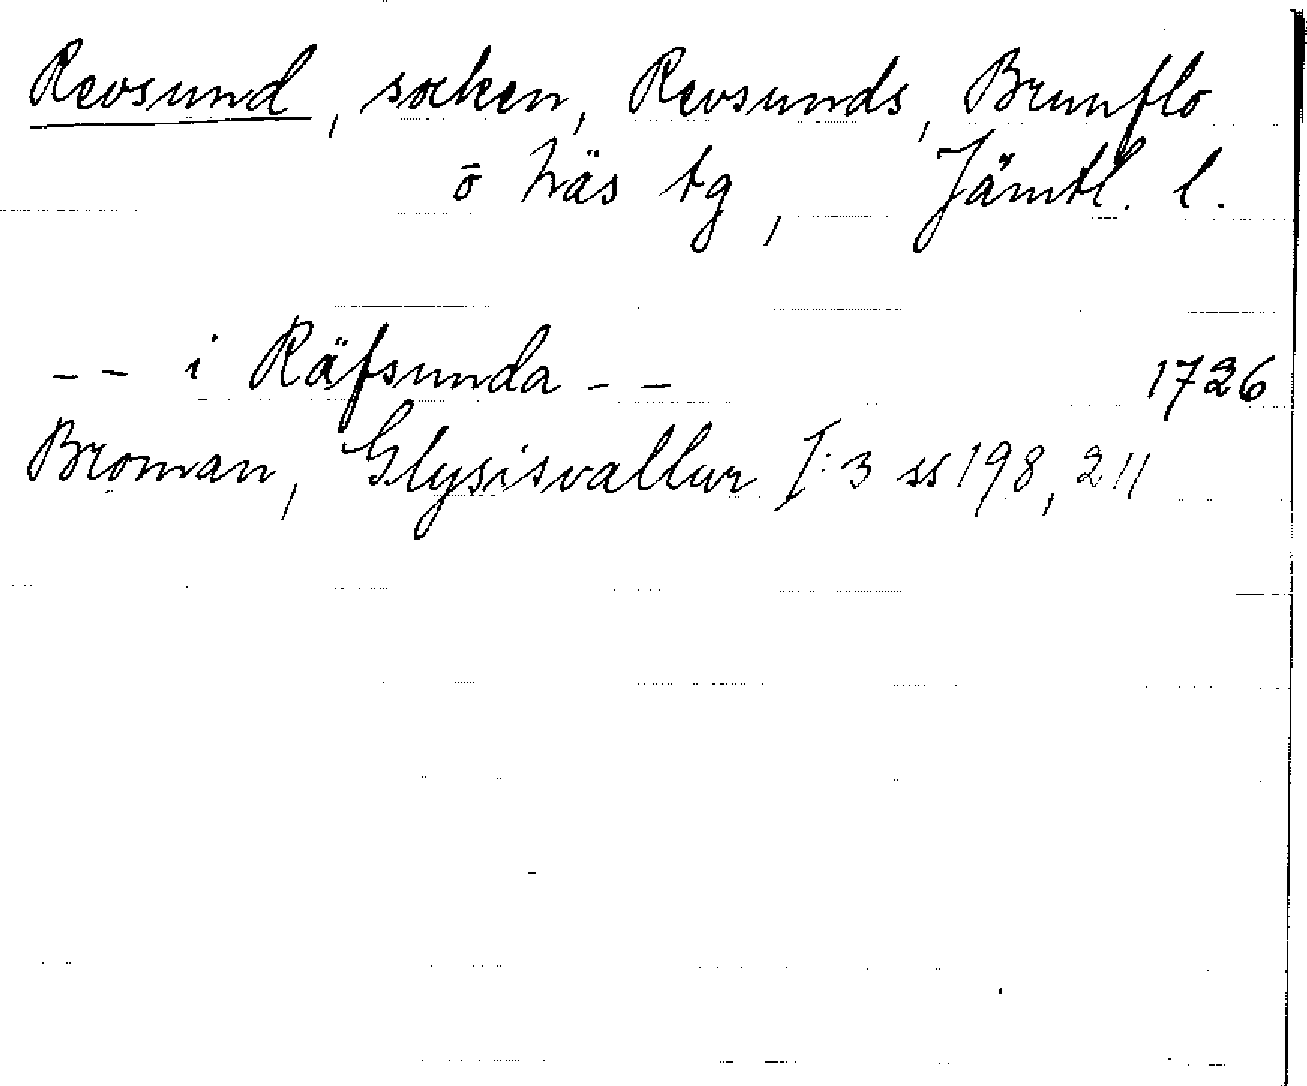 Revsund, socken, Revsunds, Brunflo
o näs tg, Jämtl. l.
-- i Räfsunda -- 1726
Broman, Glysisvallur I:3 ss 198, 211